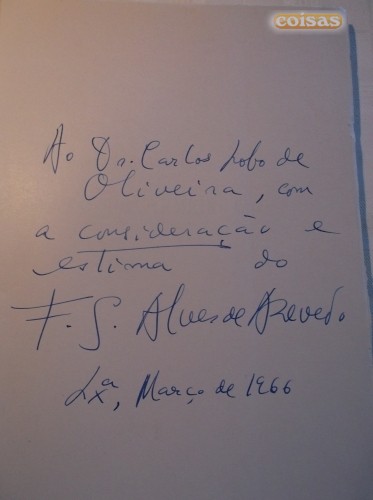 coisas
Ao Dr. Carlos Lobo de
Oliveira, com
a consideração e
estima do
F. S. Alves de Azevedo
Lxª, Março de 1966